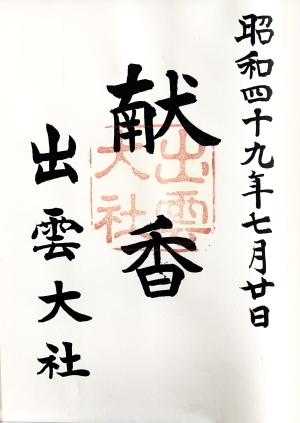 昭和四十九年七月廿日
献香
出雲大社
出雲大社